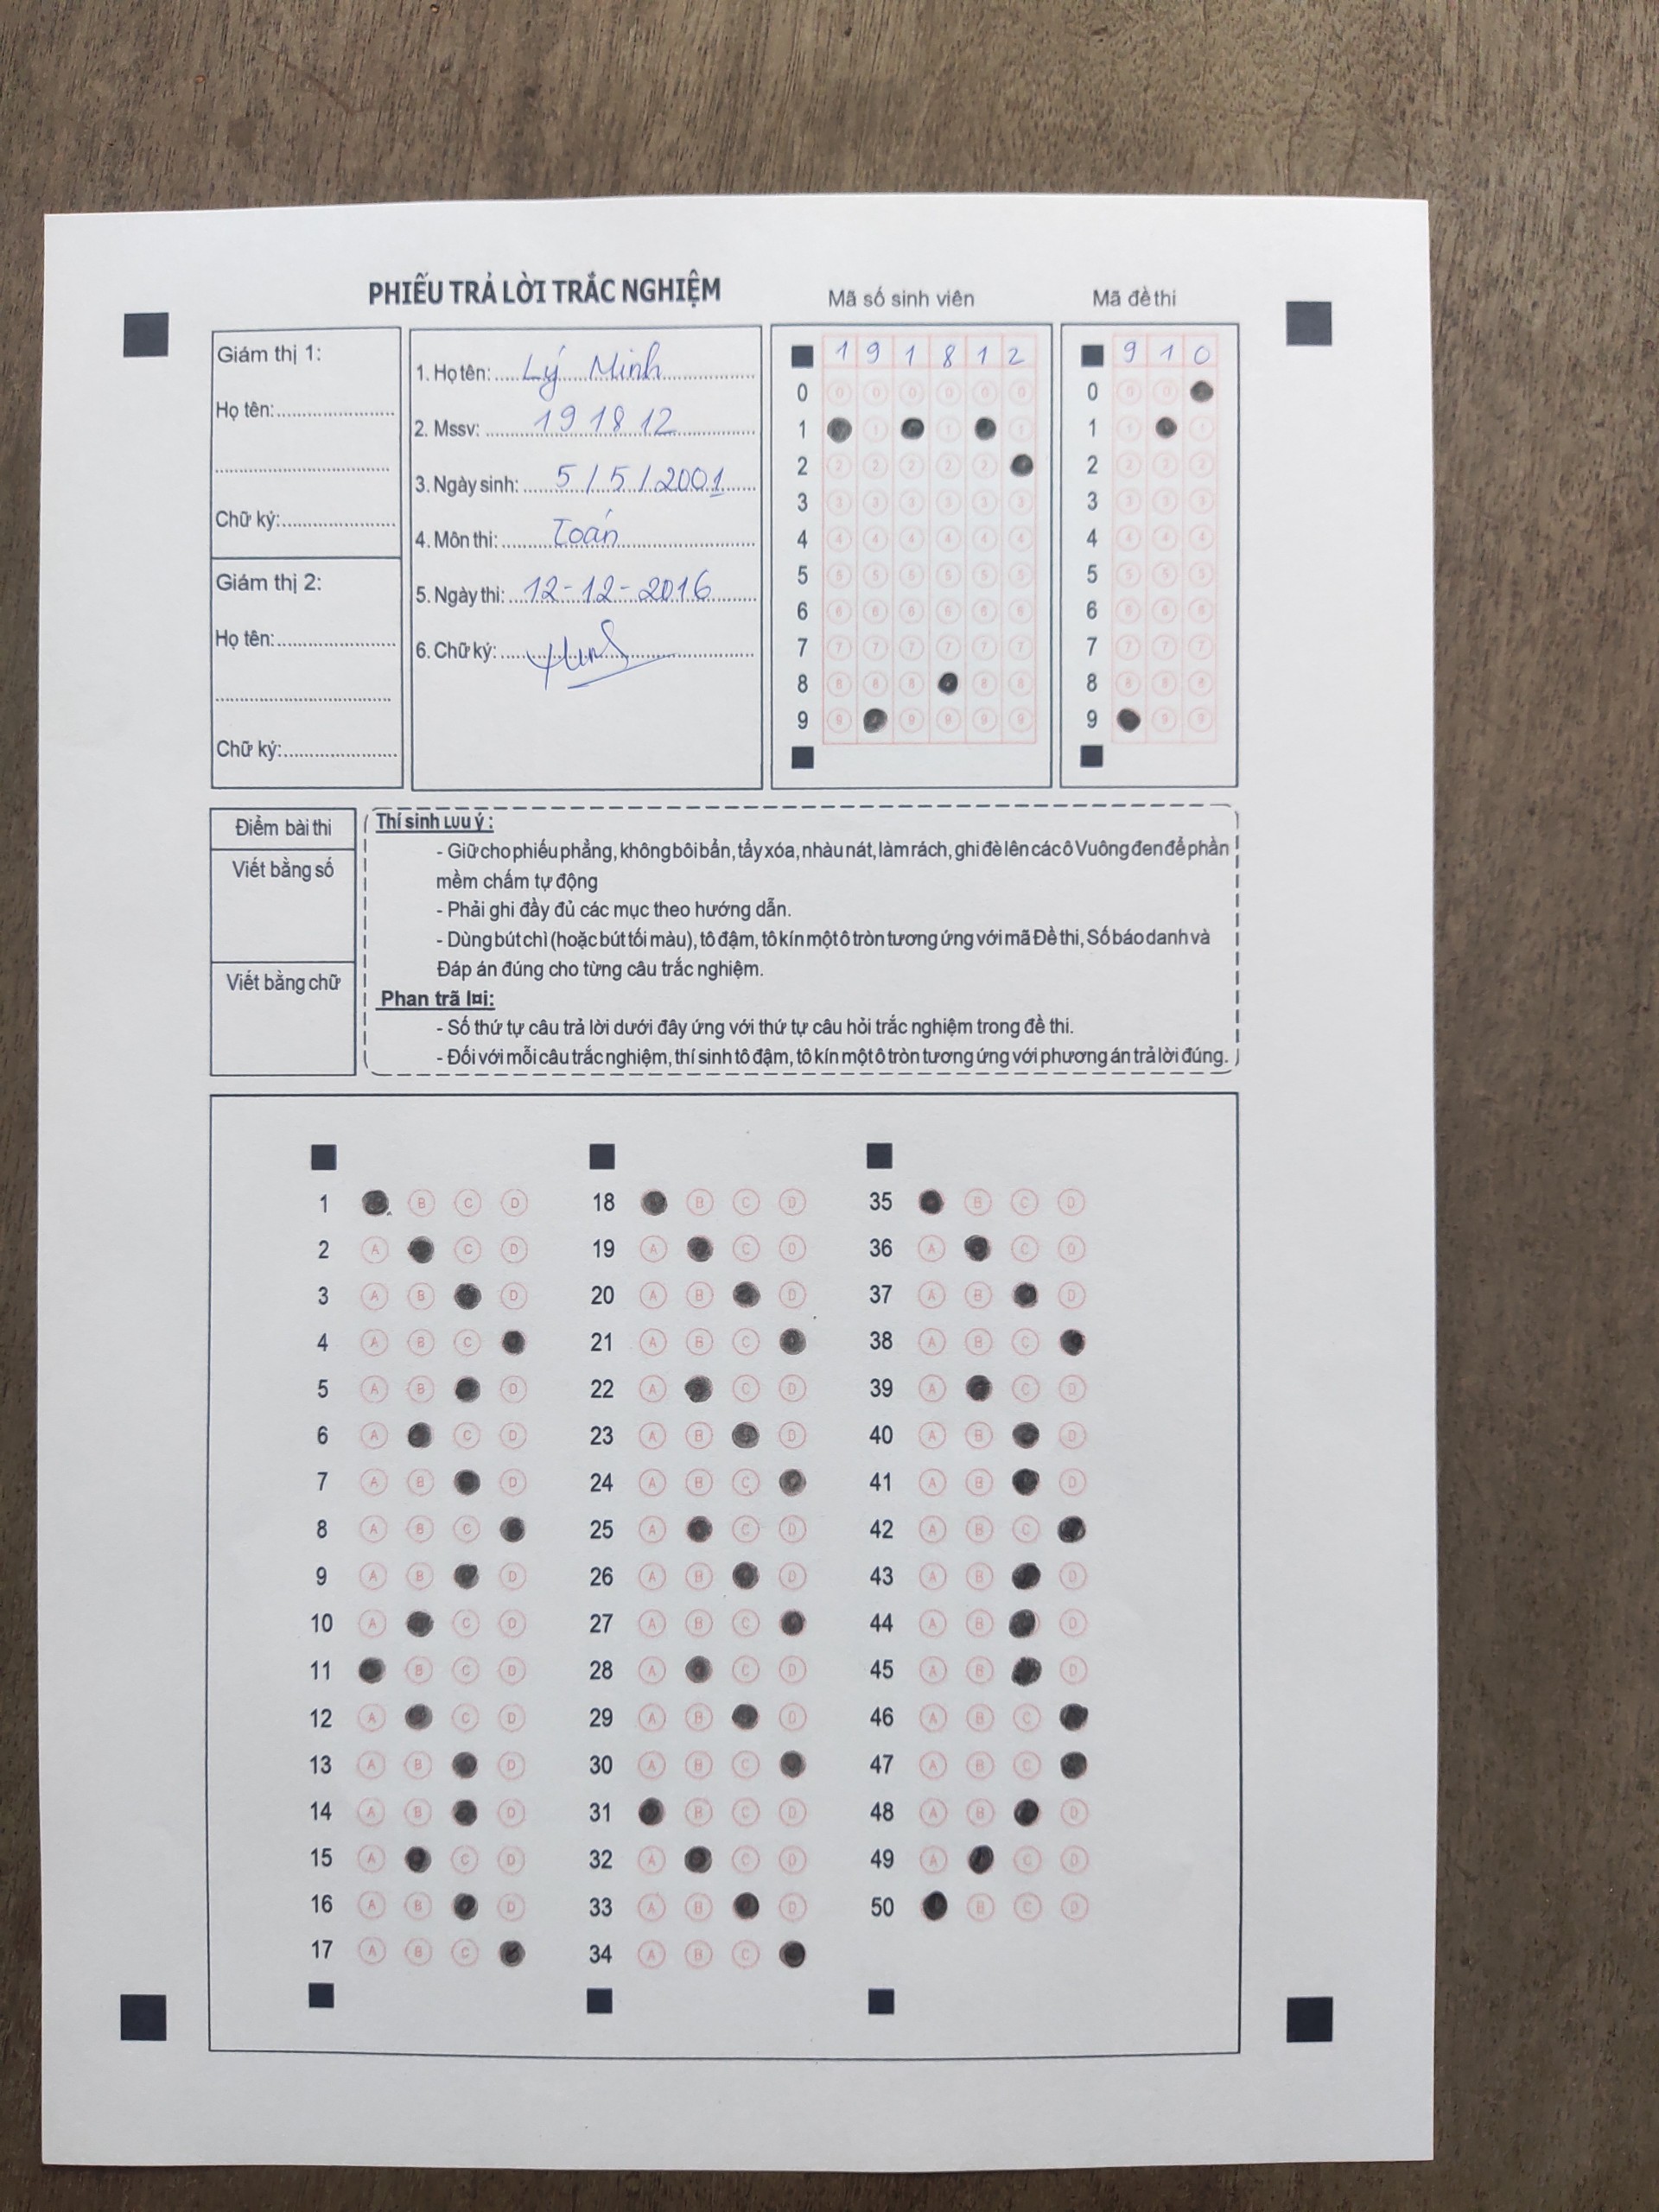 PHIẾU TRẢ LỜI TRẮC NGHIỆM
Mã số sinh viên
Mã đề thi
Giám thị 1:
Họ tên:
Chữ ký:
Giám thị 2:
Họ tên:
Chữ ký:
1. Họ tên: Lý Minh
2. Mssv: 191812
3. Ngày sinh: 5/5/2001
4. Môn thi: Toán
5. Ngày thi: 12-12-2016
6. Chữ ký:
1 9 1 8 1 2
0 0 0 0 0 0 0
1 1 1 1
2 2 2 2 2 2
3 3 3 3 3 3 3
4 4 4 4 4 4 4
5 5 5 5 5 5 5
6 6 6 6 6 6 6
7 7 7 7 7 7 7
8 8 8 8 8 8
9 9 9 9 9 9
9 1 0
0 0 0
1 1 1
2 2 2 2
3 3 3 3
4 4 4 4
5 5 5 5
6 6 6 6
7 7 7 7
8 8 8 8
9 9 9
Điểm bài thi
Viết bằng số
Viết bằng chữ
Thí sinh Lưu ý :
- Giữ cho phiếu phẳng, không bôi bẩn, tẩy xóa, nhàu nát, làm rách, ghi đè lên các ô Vuông đen để phần
mềm chấm tự động
- Phải ghi đầy đủ các mục theo hướng dẫn.
- Dùng bút chì (hoặc bút tối màu), tô đậm, tô kín một ô tròn tương ứng với mã Đề thi, Số báo danh và
Đáp án đúng cho từng câu trắc nghiệm.
Phan trã l¤i:
- Số thứ tự câu trả lời dưới đây ứng với thứ tự câu hỏi trắc nghiệm trong đề thi.
- Đối với mỗi câu trắc nghiệm, thí sinh tô đậm, tô kín một ô tròn tương ứng với phương án trả lời đúng.
1 B C D
2 A C D
3 A B D
4 A B C
5 A B D
6 A C D
7 A B D
8 A B C
9 A B D
10 A C D
11 B C D
12 A C D
13 A B D
14 A B D
15 A C D
16 A B D
17 A B C
18 B C D
19 A C D
20 A B D
21 A B C
22 A C D
23 A B D
24 A B C
25 A C D
26 A B D
27 A B C
28 A C D
29 A B D
30 A B C
31 B C D
32 A C D
33 A B D
34 A B C
35 B C D
36 A C D
37 A B D
38 A B C
39 A C D
40 A B D
41 A B D
42 A B C
43 A B D
44 A B D
45 A B D
46 A B C
47 A B C
48 A B D
49 A C D
50 B C D